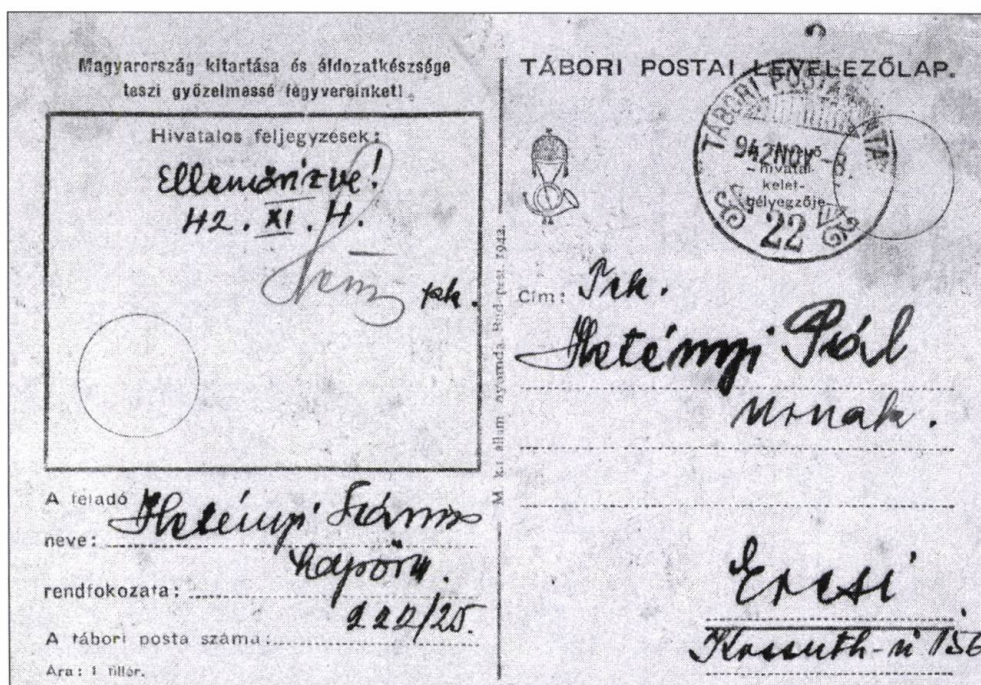 Magyarország kitartása és áldozatkészsége
teszi győzelmessé fegyvereinket!
Hivatalos feljegyzések:
Ellenőrizve!
42. XI. 4.
pk.
A feladó
neve: Hetényi János
rendfokozata: őrv.
A tábori posta száma: 222/25.
Ára: 1 fillér.
M. kir. állam. nyomda, Budapest. 1942.
TÁBORI POSTAI LEVELEZŐLAP.
TÁBORI POSTA
942 NOV -8
hivatal
kelet-
bélyegzője
22
Cím:
Hetényi Pál
urnak.
Ercsi
Kossuth-u 156